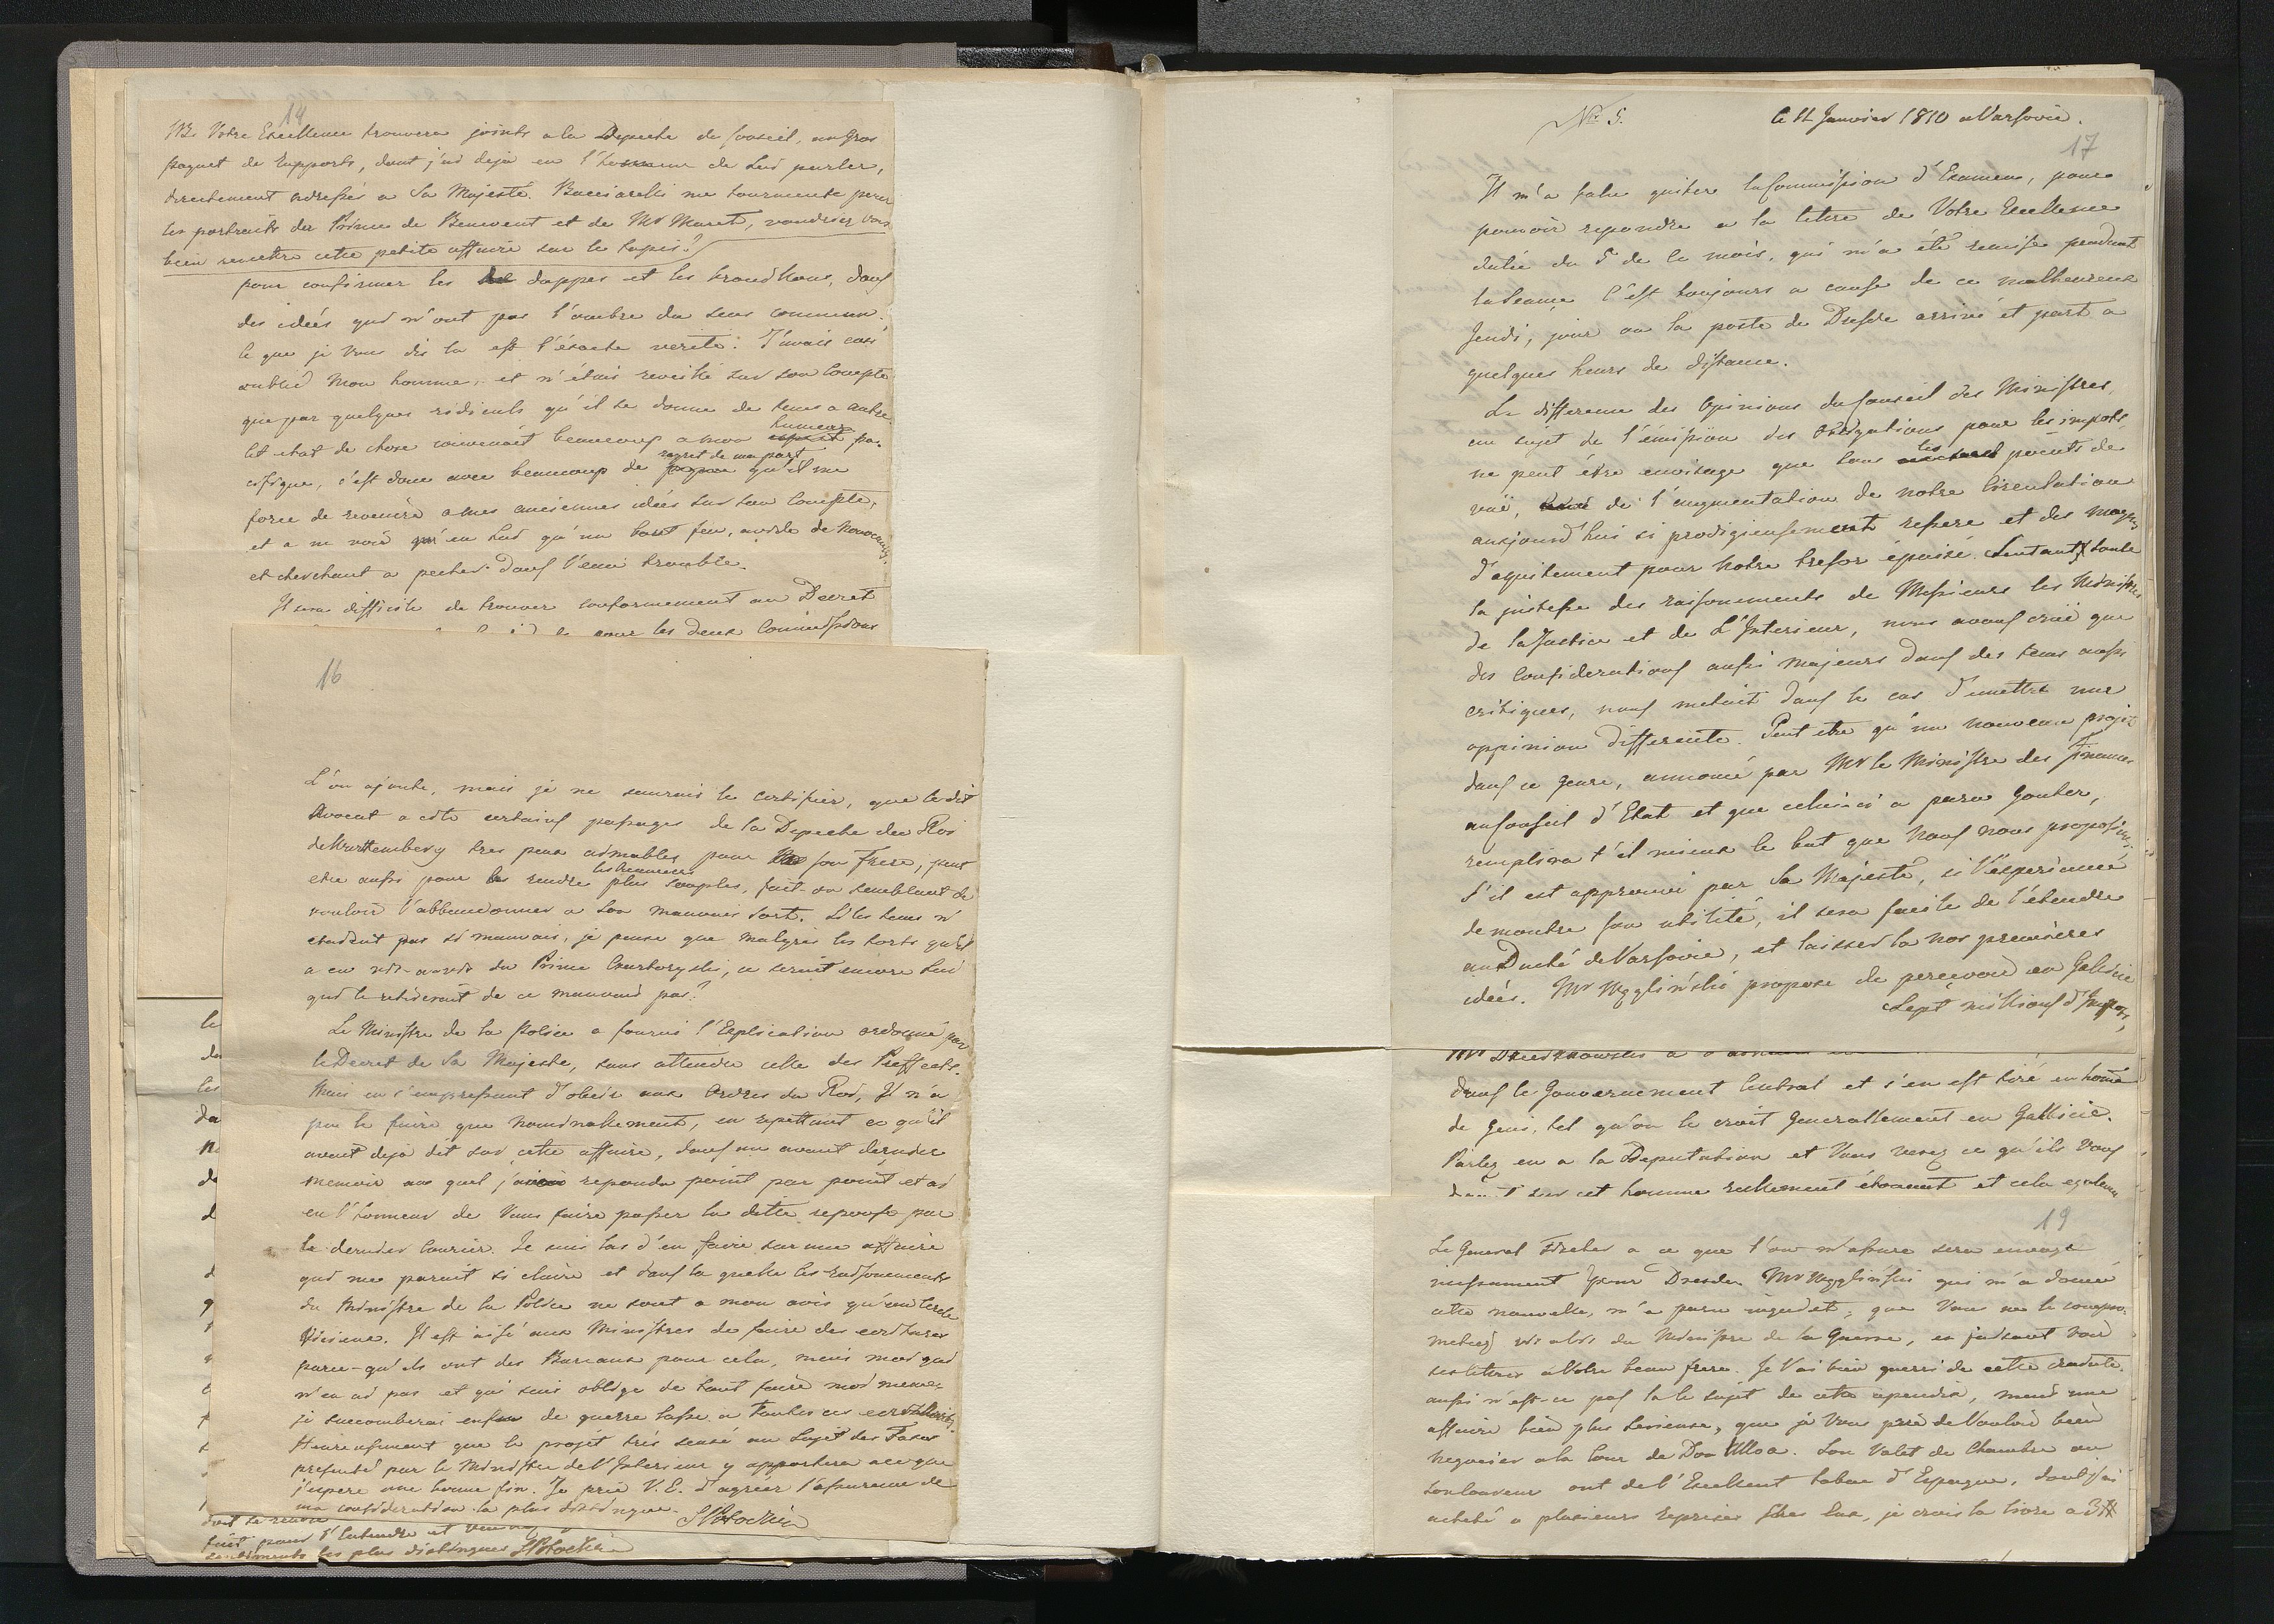 14
NB. Votre Excellence trouvera joints a la Depeche de Conseil, un gros
paquet de Rapports, dont j'ai deja eu l'honneur de Lui parler,
directement adressés a Sa Majesté. Bacciarelli me tourmente pour
les portraits du Prince de Benevent et de Mr Maret, voudriez vous
bien remettre cette petite affaire sur le tapis?
pour confirmer les dappes et les brouillons, dans
des ideés qui n'ont pas l'ombre du sens commun.
Ce que je Vous dis la est l'éxacte verité. J'avais casi
oublié mon homme, et n'étais reveillé sur son Compte
que par quelques ridicules qu'il se donne de tems a autre
Cet etat de chose convenait beaucoup a mon humeur pa-
cifique, c'est donc avec beaucoup de regret de ma part qu'il me
force de revenir a mes anciennes idées sur son Compte,
et a ne voir en lui qu'un bout feu, avide de
et cherchant a pecher dans l'eau trouble.
Il sera difficile de trouver conformement au Decret
pour les deux Commissions
16
L'on ajoute, mais je ne saurais le certifier, que le dit
Avocat a cité certains passages de la Depeche du Roi
de Wurttemberg tres peu aimables pour son Frere, peut
etre aussi pour rendre plus souples, fait-on semblant de
vouloir l'abbandonner a son mauvais sort. Si les tems n'
etaient pas si mauvais, je pense que malgré les torts qu'il
a eu vis-a-vis du Prince Czartoryski, ce serait encore lui
qui le retirerait de ce mauvais pas?
Le Ministre de la Police a fourni l'Explication ordonné par
le Decret de Sa Majesté, sans attendre celle des Preffects.
Mais en s'empressant d'obeir aux Ordres du Roi, Il n'a
pu le faire que nominallement, en repettant ce qu'il
avait deja dit sur cette affaire, dans un avant dernier
memoir au quel j'avais repondu point par point et ai
eu l'honneur de Vous faire passer la ditte reponse par
le dernier Courier. Je suis las d'en faire sur une affaire
qui me parait si claire et dans la quelle les raisonnements
du Ministre de la Police ne sont a mon avis qu'un Cercle
Vicieux. Il est aisé aux Ministres de faire des ecritures
parce-qu'ils ont des Bureaux pour cela, mais moi qui
n'en ai pas et qui suis obligé de tout faire moi meme,
je succomberai enfin de guerre lasse a toutes ces
Heureusement que le projet très sensé au Sujet des Taxes
presenté par le Ministre de l'Interieur y apportera a ce que
j'espere une bonne fin. Je prie V. E. d'agréer l'assurance de
ma consideration la plus distinguée. SPotocki
sentiments les plus distingues SPotocki
No 5. le 11 Janvier 1810 a Varsovie.
17
Il m'a falu quitter la Commission d'Examen, pour
pouvoir repondre a la lettre de Votre Excellence
datée du 5 de ce mois, qui m'a été remise pendant
la Seance. C'est toujours a cause de ce malheureux
Jeudi, jour ou la poste de Dresde arrive et part a
quelques heurs de distance.
La difference des Opinions du Conseil des Ministres,
au sujet de l'émission des Obligations pour les impots,
ne peut être envisagé que sous les points de
vuë, de l'augmentation de notre Circulation
aujourd'hui si prodigieusement resseré et des moyens
d'aquitement pour notre tresor épuisé. Sentant toute
la justesse des raisonnements de Messieurs les Ministres
de la Justice et de L'Interieur, nous avons crüe que
des Considerations aussi majeurs dans des tems aussi
critiques, nous metait dans le cas d'emettre une
oppinion differente. Peut etre qu'un nouveau projet
dans ce genre, annoncé par Mr le Ministre des Finances
au Conseil d'Etat et que celui-ci a paru gouter,
remplira t'il mieux le but que nous nous proposions,
s'il est approuvé par Sa Majesté, si l'experience
demontre son utilité, il sera facile de l'étendre
au Duché de Varsovie, et laisser la nos premieres
ideés. Mr Węgliński propose de percevoir en Galicie
Sept millions d'Impots,
dans le Gouvernement Central et s'en est tiré en home
de gens, tel qu'on le croit generallement en Gallicie.
Parlez en a la Deputation et Vous verrez ce qu'ils Vous
sur cet homme reellement étonnant et cela egalem
19
Le General Fischer a ce que l'on m'assure sera envoyé
incessament pour Dresden Mr Węgliński qui m'a donné
cette nouvelle, m'a paru inquiet, que Vous ne le compro-
mettiez vis a vis du Ministre de la Guerre, en faisant voir
ses lettres a Votre beau frere. Je l'ai bien guerri de cette crainte.
aussi n'est-ce pas la le sujet de cette apendix, mais une
affaire bien plus serieuse, que je Vous prie de Vouloir bien
negocier a la Cour de Don Ulloa. Son Valet de Chambre ou
son Coureur ont de l'Excellent tabac d'Espagne, dont j'ai
acheté a plusieurs reprises chez eux, je crois la livre a 3#